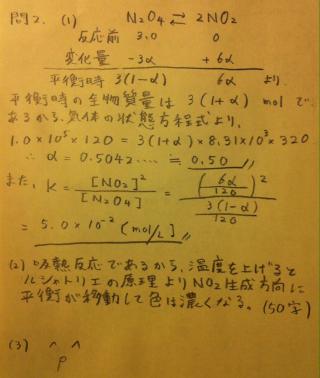 問2. (1) N₂O₄ ⇄ 2NO₂
反応前 3.0 0
変化量 -3α +6α
平衡時 3(1-α) 6α より
平衡時の全物質量は 3(1+α) mol で
あるから、気体の状態方程式より、
1.0×10⁵×120 = 3(1+α)×8.31×10³×320
∴ α = 0.5042…… ≒ 0.50
また、K = [NO₂]² / [N₂O₄] = (6α/120)² / (3(1-α)/120)
= 5.0×10⁻² (mol/L)
(2) 吸熱反応であるから、温度を上げると
ルシャトリエの原理よりNO₂生成方向に
平衡が移動して色は濃くなる。(50字)
(3) ^ ^
p